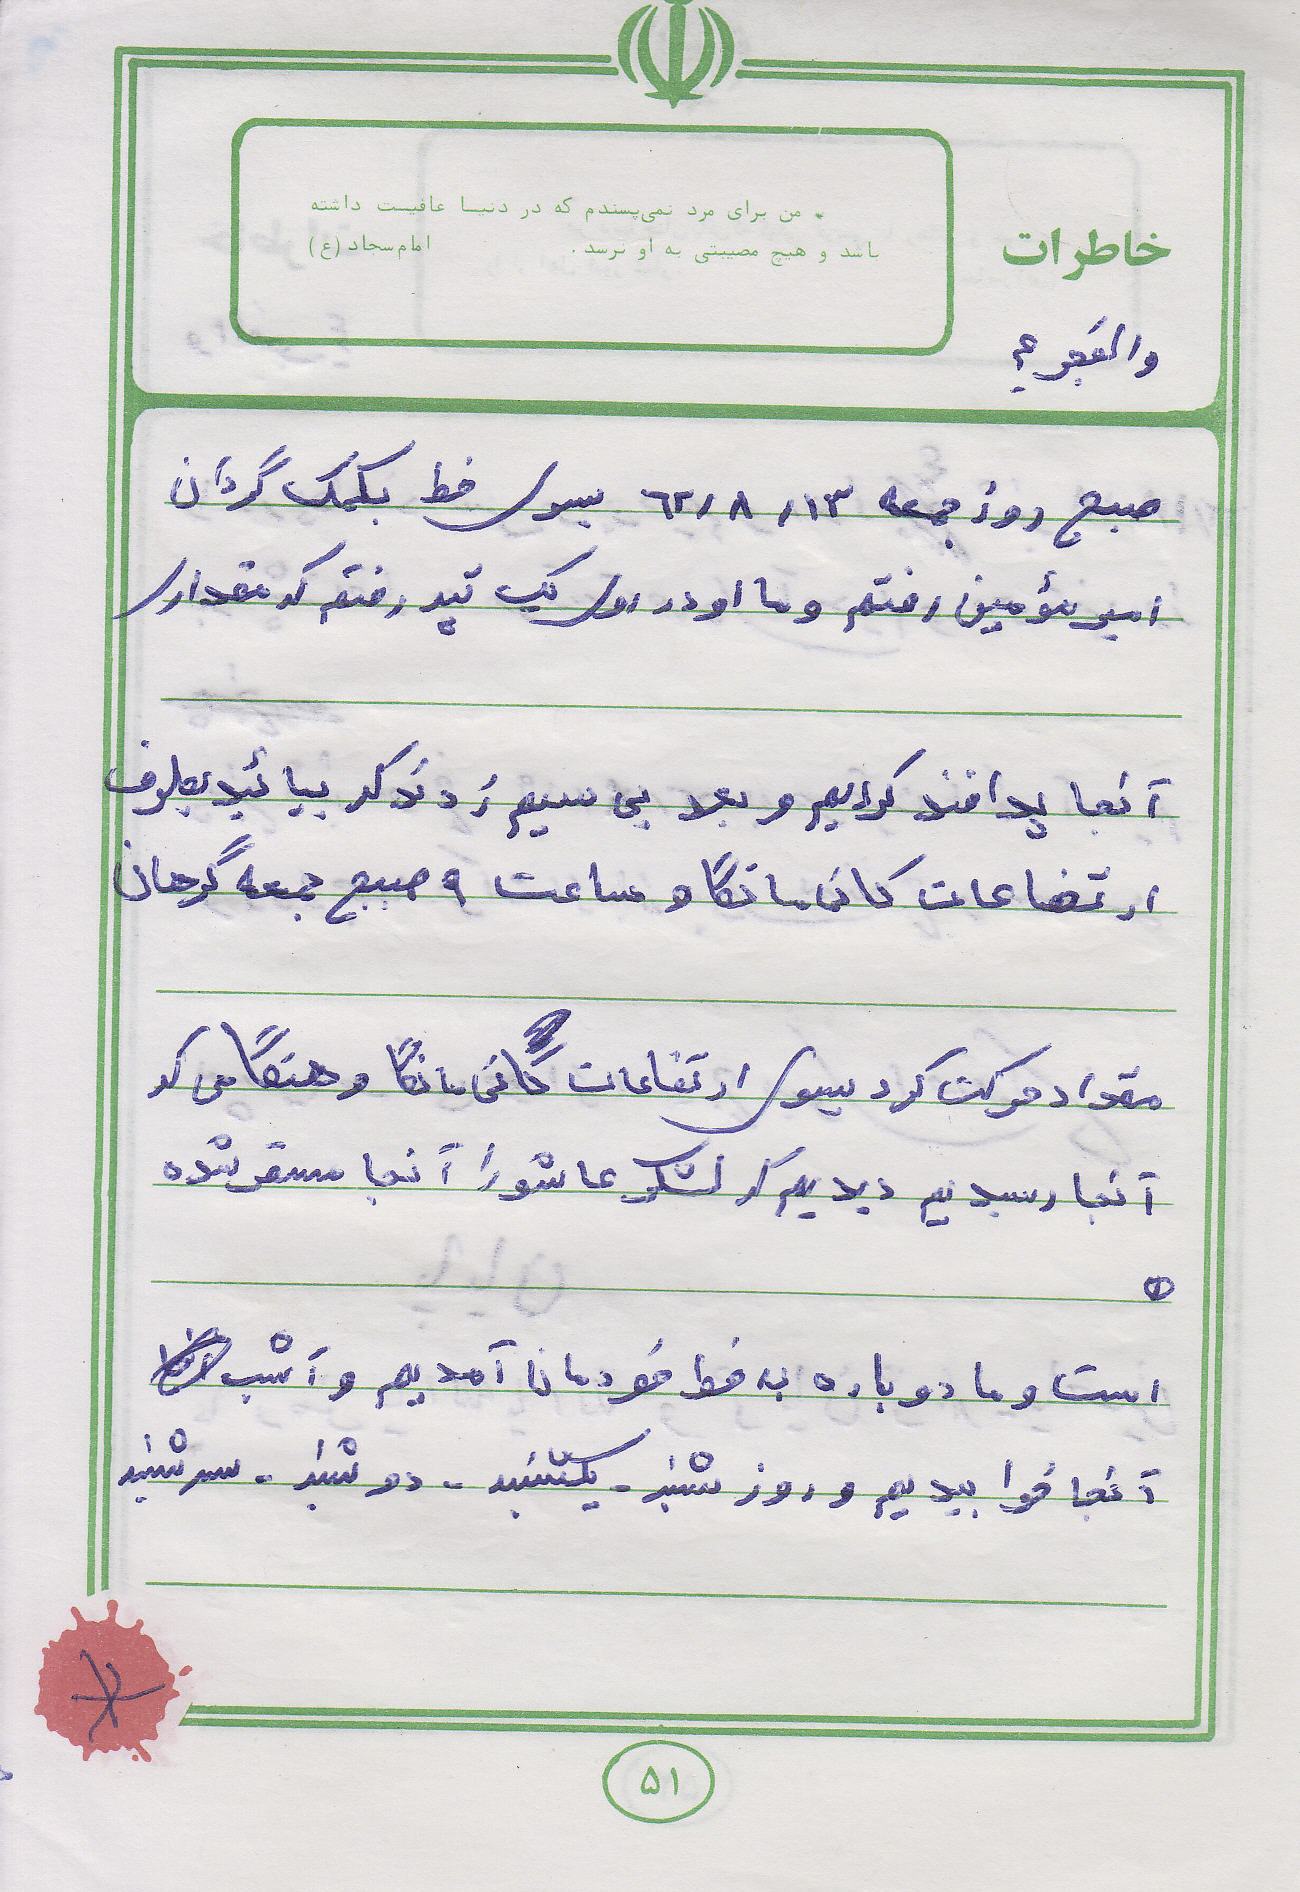 * من برای مرد نمی‌پسندم که در دنیـا عافیـت داشته
باشد و هیچ مصیبتی به او نرسد . امام سجاد (ع)
خاطرات
والفجر ۴
صبح روز جمعه ۶۲/۸/۱۳ بسوی خط بکمک گردان
امیرمؤمنین رفتم و ما او در روی یک تپه رفتم که مقداری
آنجا پدافند کردیم و بعد بی سیم زدند که بیائید بطرف
ارتفاعات کانی مانگا و ساعت ۹ صبح جمعه گردان
مقداد حرکت کرد بسوی ارتفاعات کانی مانگا و هنگامی که
آنجا رسیدیم دیدیم که لشکر عاشورا آنجا مستقر شده
است و ما دوباره به خط خودمانا آمدیم و آ شب
آنجا خوابیدیم و روز شنبه - یکشنبه - دوشنبه - سه شنبه
۵۱